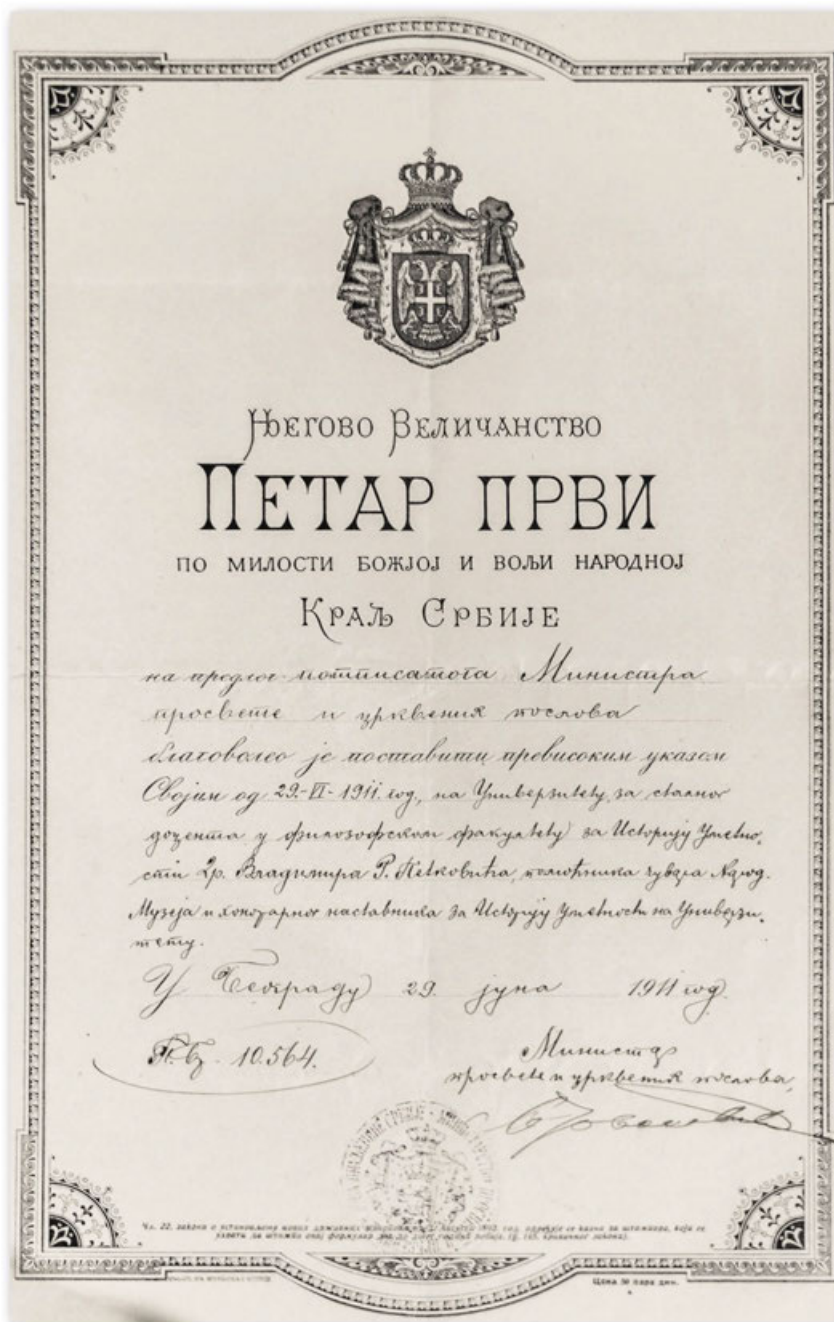 Његово Величанство
ПЕТАР ПРВИ
ПО МИЛОСТИ БОЖЈОЈ И ВОЉИ НАРОДНОЈ
Краљ Србије
на предлог потписатога Министра
просвете и црквених послова
благоволео је поставити превисоким указом
Својим од 29-VI-1911. год., на Универзитету, за сталног
доцента у филозофском факултету за Историју Уметно-
сти Др. Владимира Р. Петковића, помоћника чувара Народ.
Музеја и хонорарног наставника за Историју Уметности на Универзи-
тету.
У Београду 29. јуна 1911 год.
П. бр. 10.564.
Министар
просвете и црквених послова,
Чл. 22. закона о установљењу нових државних
Цена 50 пара дин.